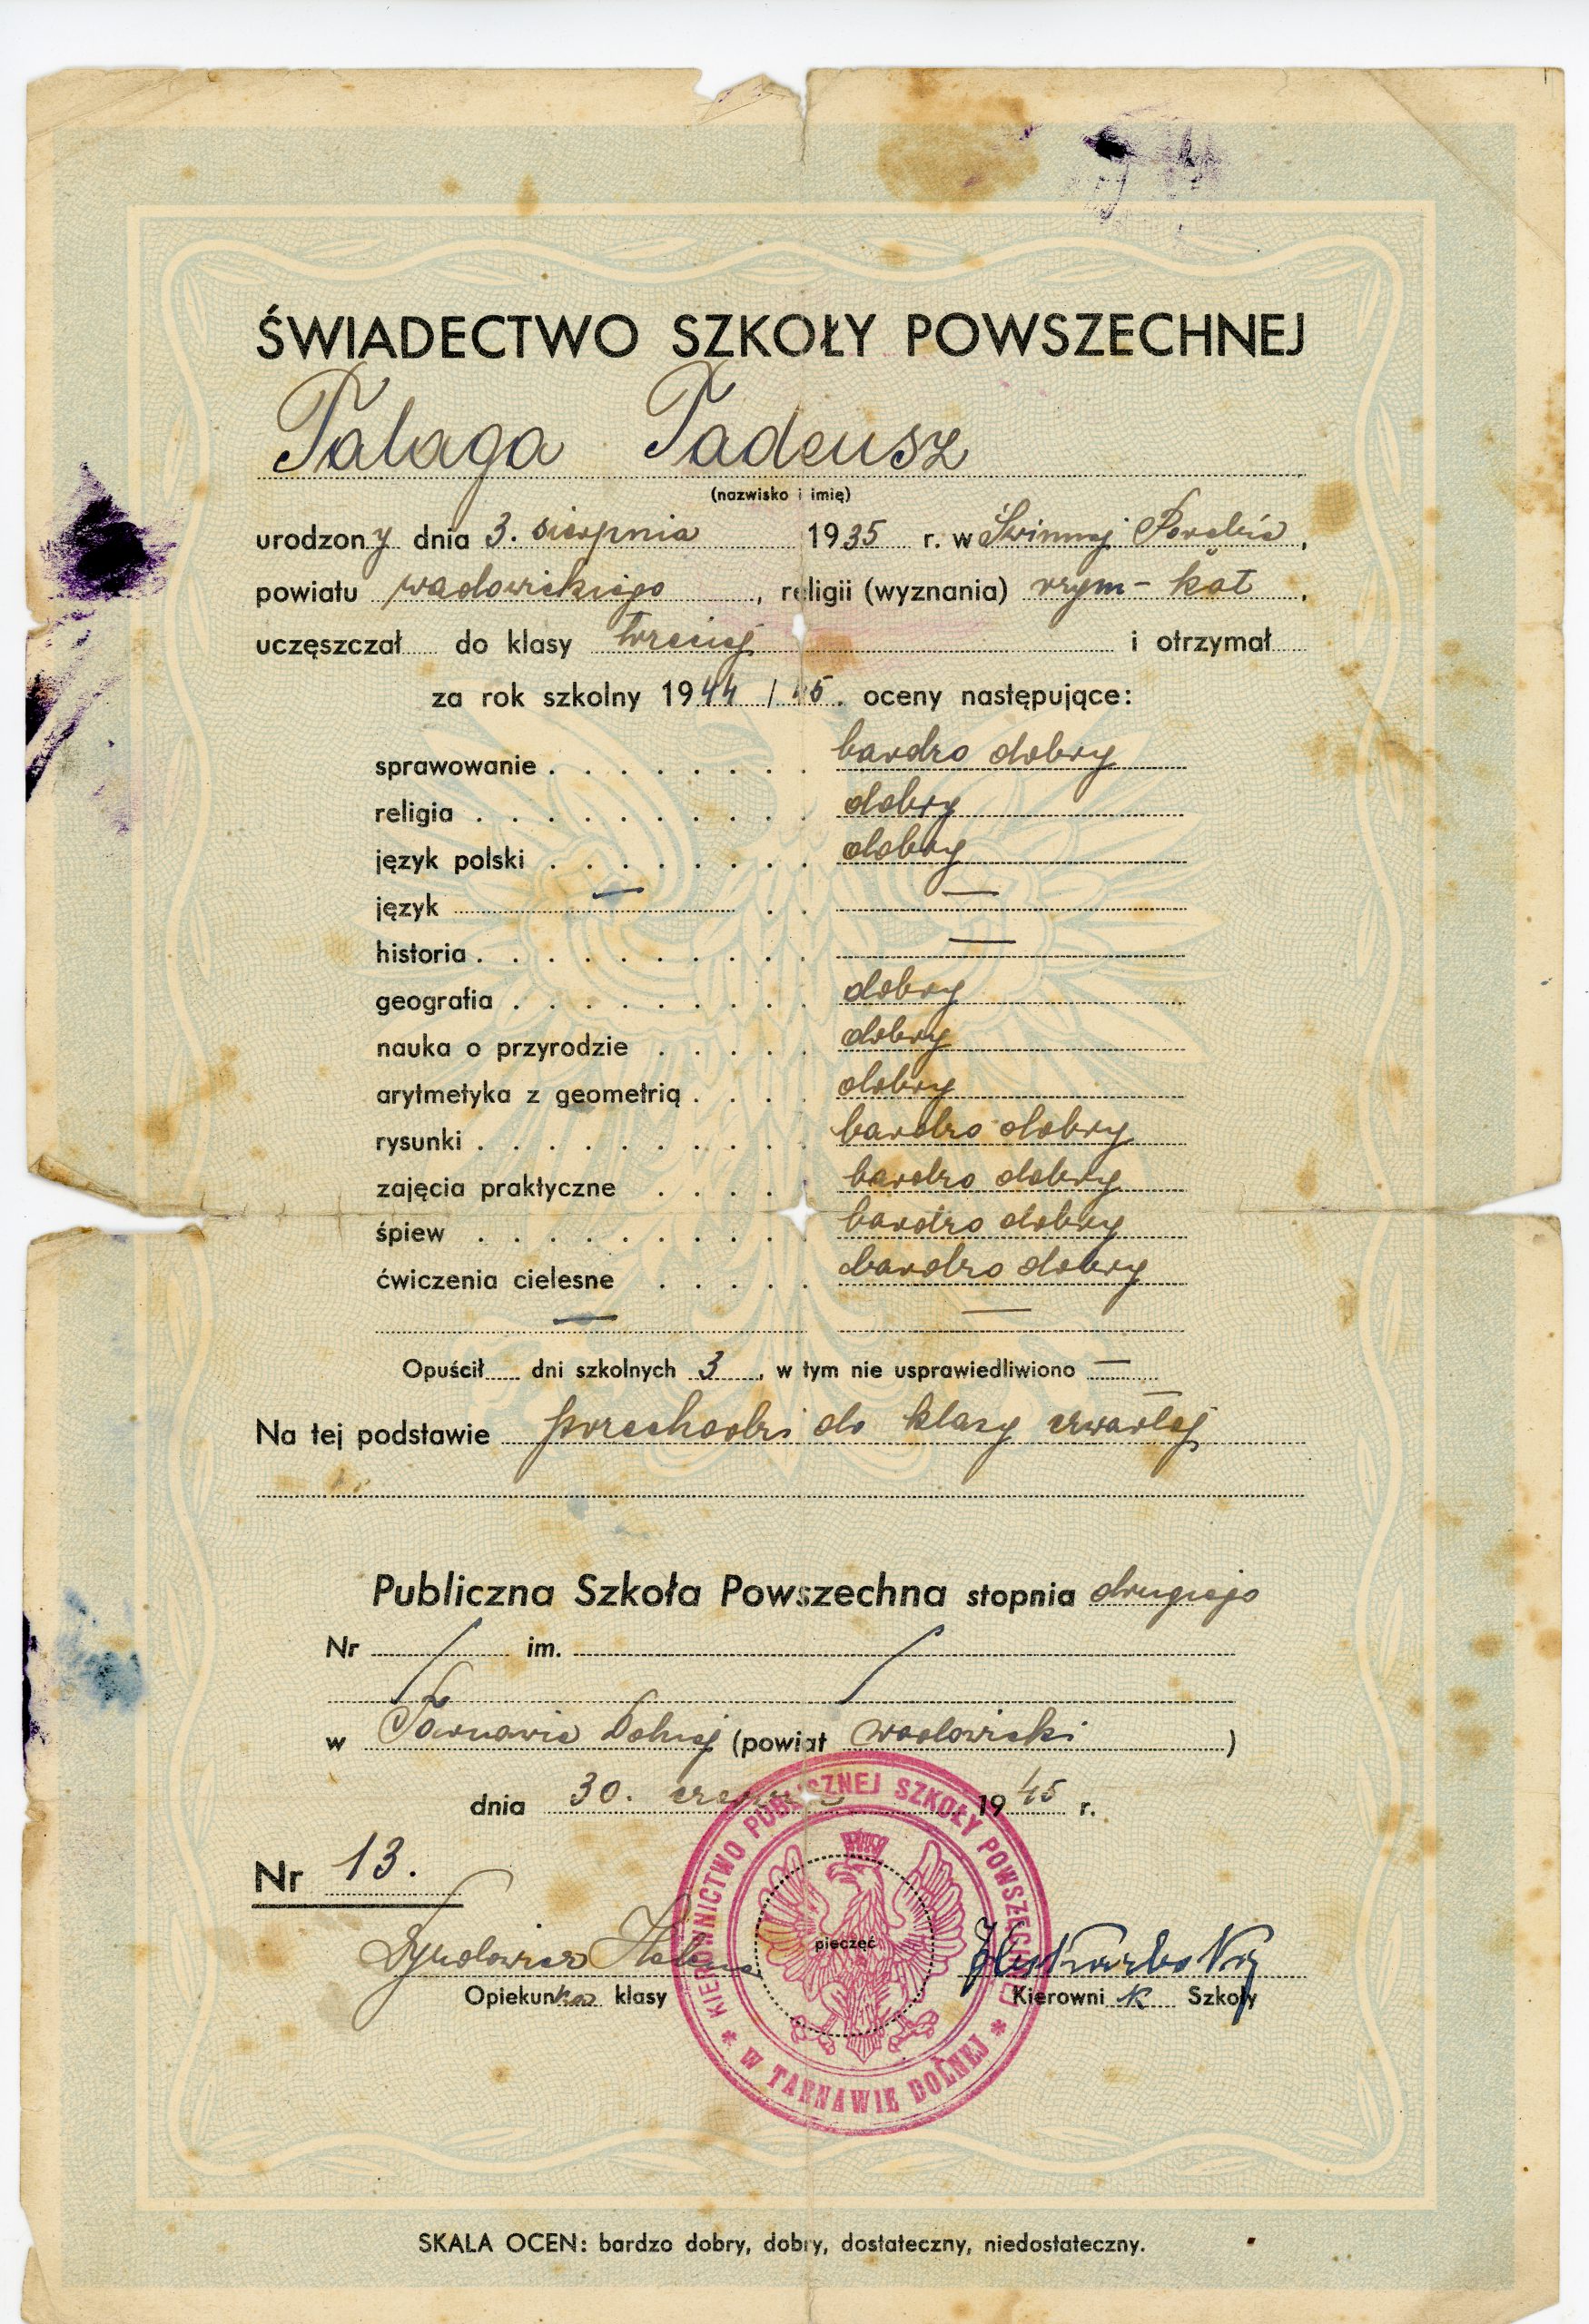 ŚWIADECTWO SZKOŁY POWSZECHNEJ
Pałaga Tadeusz
(nazwisko i imię)
urodzony dnia 3. sierpnia 1935 r. w Świnnej Porębie,
powiatu wadowickiego, religii (wyznania) rzym-kat,
uczęszczał do klasy trzeciej i otrzymał
za rok szkolny 1944/45. oceny następujące:
sprawowanie . . . . . . . . bardzo dobry
religia . . . . . . . . . . dobry
język polski . . . . . . . . dobry
język — . . —
historia . . . . . . . . . . —
geografia . . . . . . . . . dobry
nauka o przyrodzie . . . . . dobry
arytmetyka z geometrią . . . . dobry
rysunki . . . . . . . . . . bardzo dobry
zajęcia praktyczne . . . . . bardzo dobry
śpiew . . . . . . . . . . bardzo dobry
ćwiczenia cielesne . . . . . bardzo dobry
— —
Opuścił dni szkolnych 3, w tym nie usprawiedliwiono —
Na tej podstawie przechodzi do klasy czwartej
Publiczna Szkoła Powszechna stopnia drugiego
Nr / im. /
w Tarnawie Dolnej (powiat wadowicki)
dnia 30. czerwca 1945 r.
Nr 13.
Helena
Opiekunka klasy
pieczęć
Kierownik Szkoły
KIEROWNICTWO PUBLICZNEJ SZKOŁY POWSZECHNEJ
* W TARNAWIE DOLNEJ *
SKALA OCEN: bardzo dobry, dobry, dostateczny, niedostateczny.